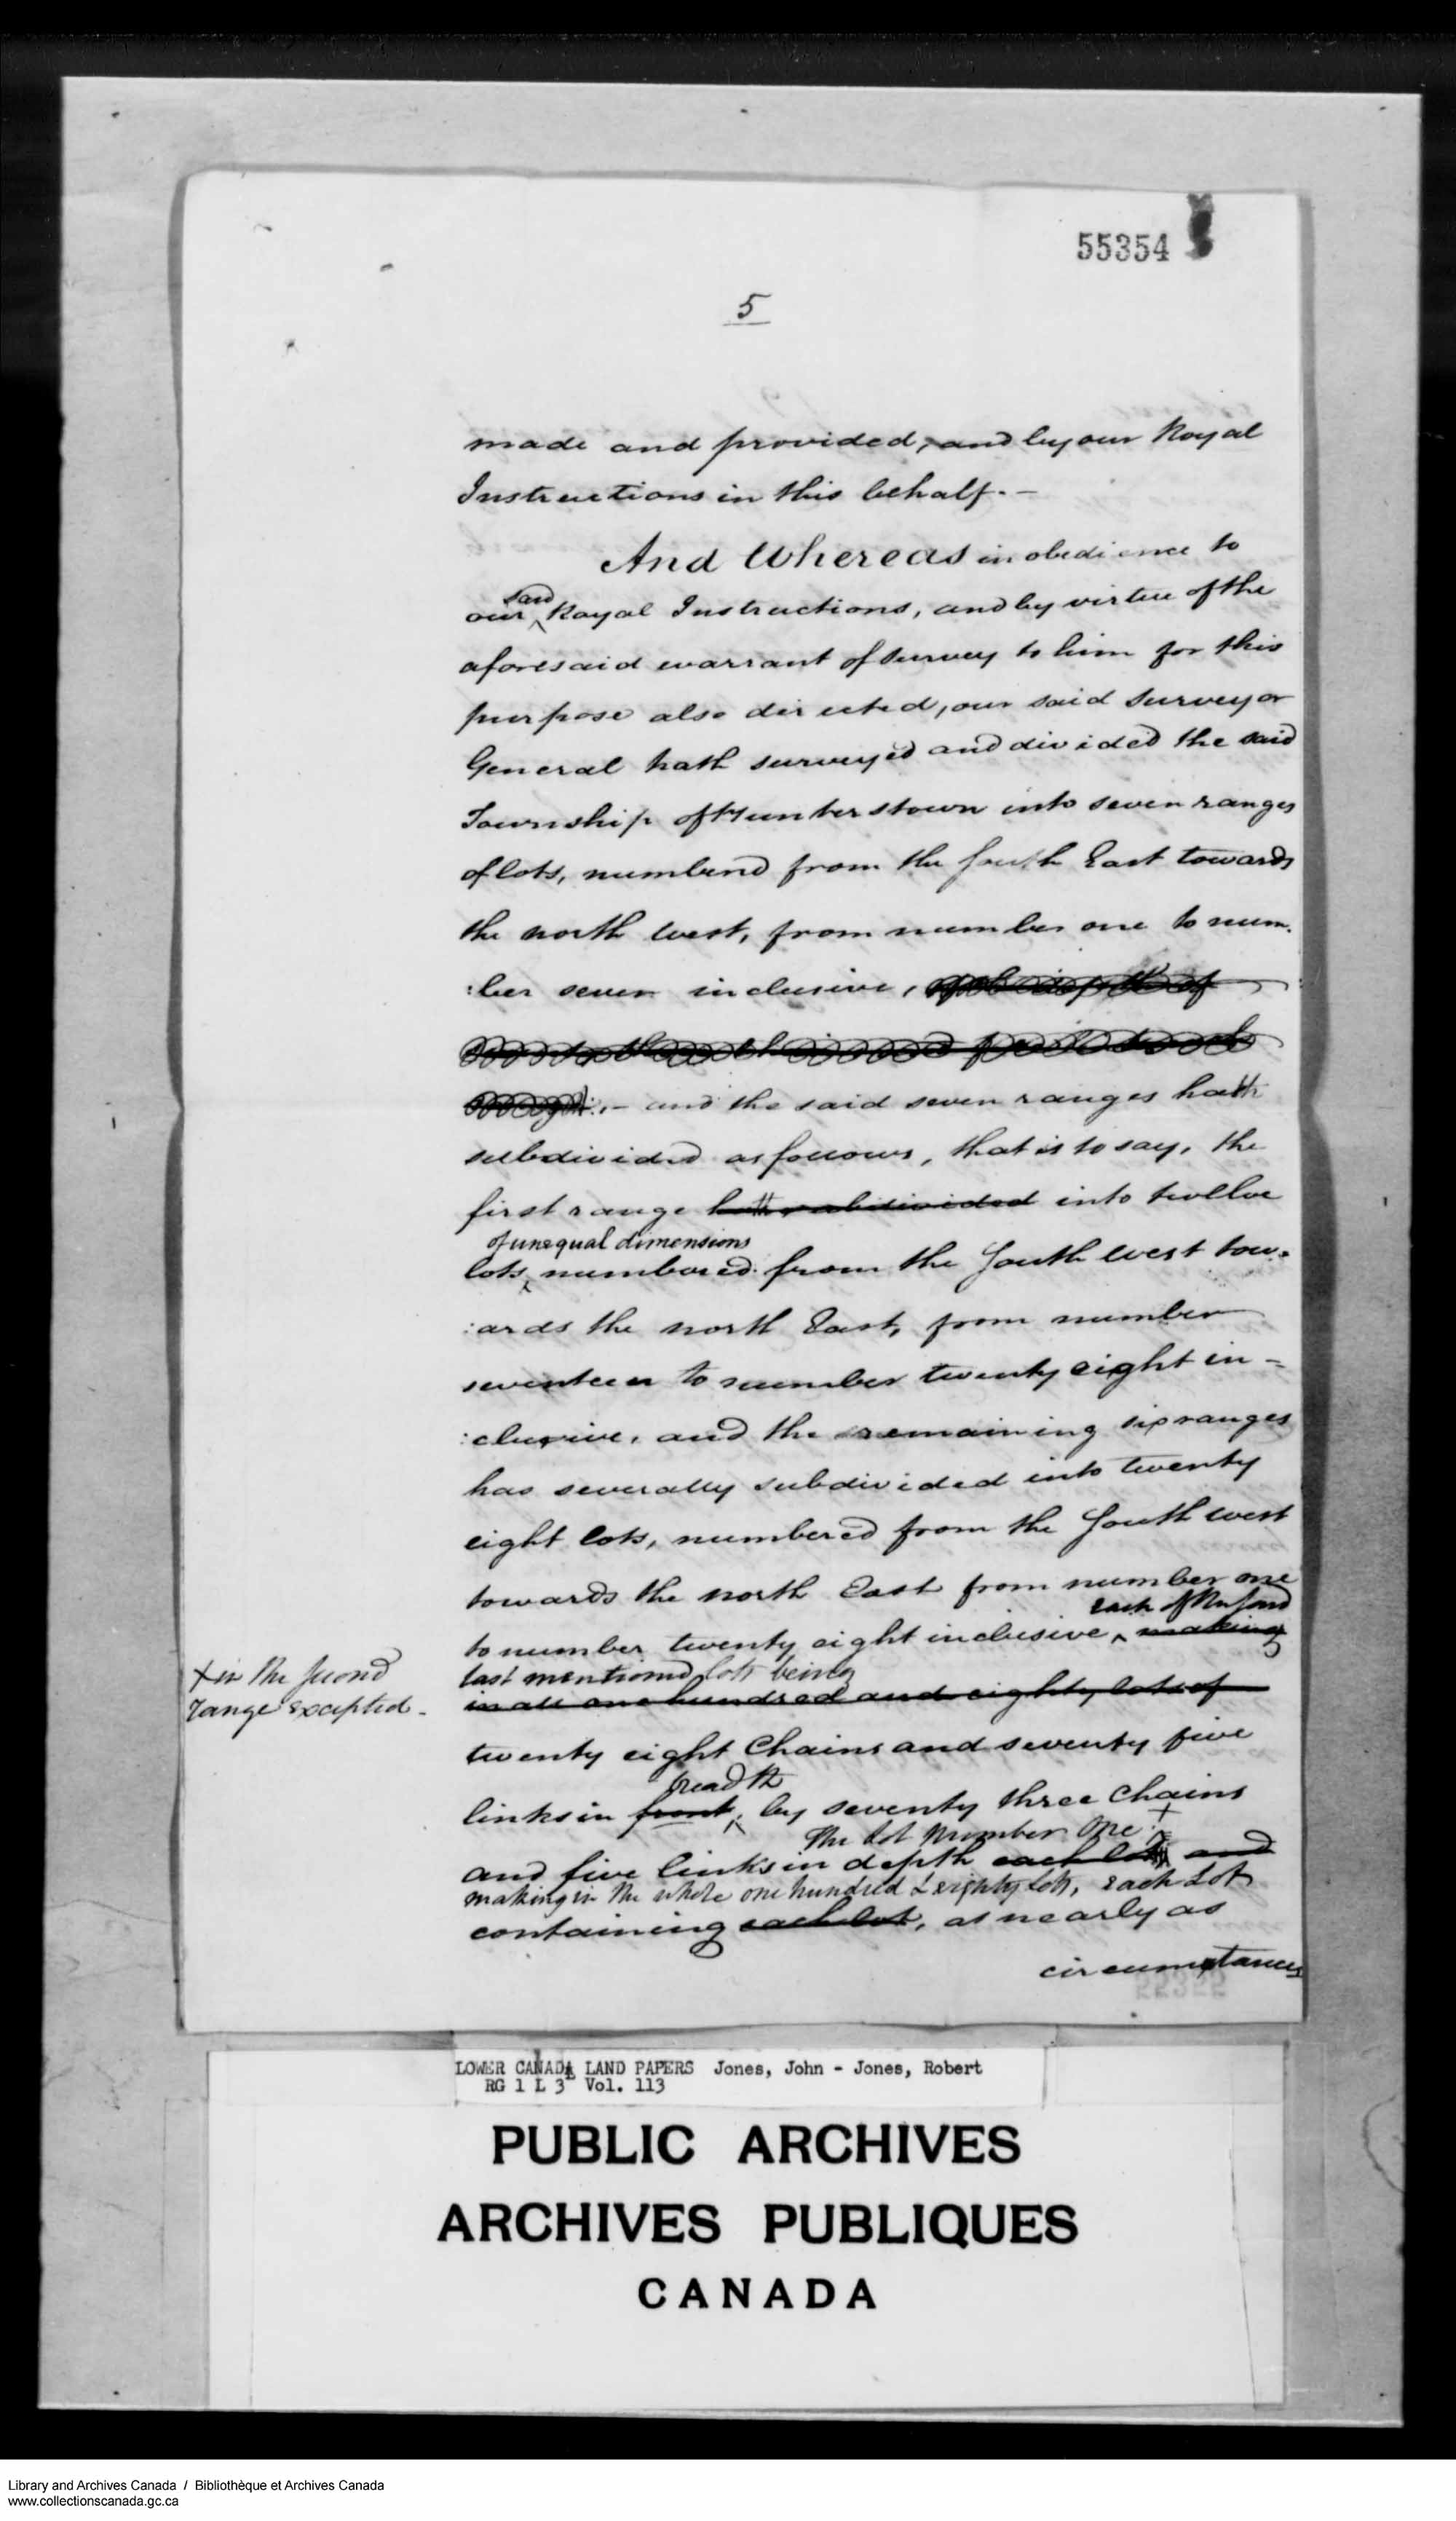 55354
5
made and provided, and by our Royal
Instructions in this behalf. —
And Whereas in obedience to
said
our Royal Instructions, and by virtue of the
aforesaid warrant of survey to him for this
purpose also directed, our said Surveyor
General hath surveyed and divided the said
Township of Hunterstown into seven ranges
of lots, numbered from the South East towards
the north west, from number one to num
:ber seven inclusive,
— and the said seven ranges hath
subdivided as follows, that is to say, the
first range hath subdivided into twelve
of unequal dimensions
lots, numbered from the South west tow-
:ards the north East, from number
seventeen to number twenty eight in-
:clusive, and the remaining six ranges
has severally subdivided into twenty
eight lots, numbered from the South west
towards the north East from number one
each of the said
to number twenty eight inclusive, making
last mentioned lots being
in all one hundred and eighty lots of
+ in the second
range excepted -
twenty eight Chains and seventy five
breadth
links in front, by seventy three Chains
The Lot Number One +
and five links in depth each lot and
making in the whole one hundred & eighty lots, each Lot
containing each lot, as nearly as
circumstances
LOWER CANADA LAND PAPERS Jones, John - Jones, Robert
RG 1 L 3 Vol. 113
PUBLIC ARCHIVES
ARCHIVES PUBLIQUES
CANADA
Library and Archives Canada / Bibliothèque et Archives Canada
www.collectionscanada.gc.ca